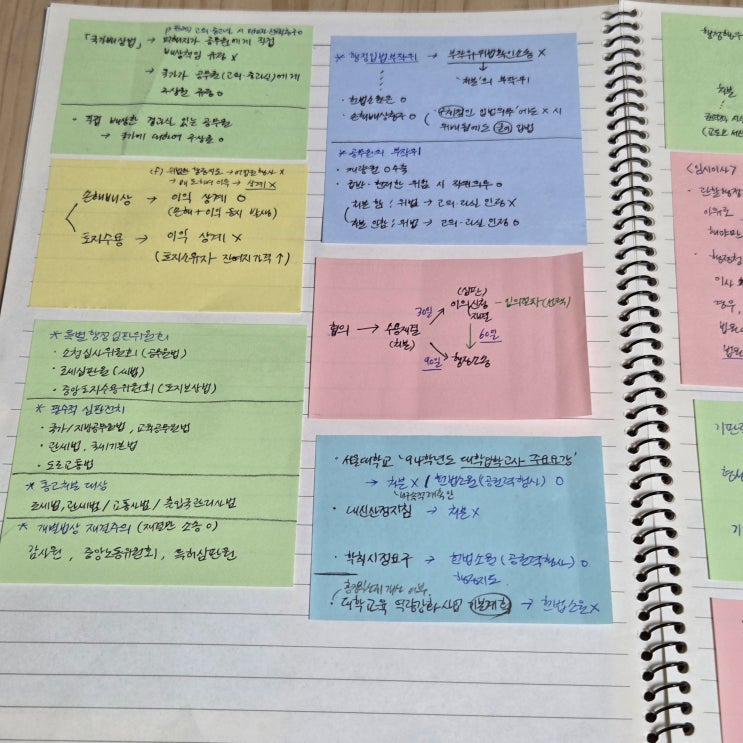 「국가배상법」 → 피해자가 공무원에게 직접
배상책임 규정 X
→ 국가가 공무원(고의·중과실)에게
구상권 규정 O
· 직접 배상한 경과실 있는 공무원
→ 국가에 대하여 구상권 O
상계 X
손해배상 → 이익 상계 O
(손해+이익 동시 발생)
토지수용 → 이익 상계 X
(토지소유자 잔여지 가격↑)
* 특별행정심판위원회
· 소청심사위원회 (공무원법)
· 조세심판원 (세법)
· 중앙토지수용위원회 (토지보상법)
* 필수적 심판전치
· 국가/지방공무원법, 교육공무원법
· 관세법, 국세기본법
· 도로교통법
* 통고처분 대상
조세범, 관세범 / 교통사범 / 출입국관리사범
* 개별법상 재결주의 (재결만 소송 O)
감사원, 중앙노동위원회, 특허심판원
* 행정입법부작위 → 부작위위법확인소송 X
'처분'의 부작위
· 헌법소원 O
· 손해배상청구 O
* 공무원의 부작위
처분 함 : 위법 → 고의·과실 인정 X
처분 안함 : 위법 → 고의·과실 인정 O
(심판)
협의 → 수용재결 30일 이의신청 - 임의절차 (선택)
(처분) 재결
60일
90일 행정소송
· 서울대학교 '94학년도 대학입학고사 주요요강'
→ 처분 X / 헌법소원(공권력행사) O
· 내신산정지침 → 처분 X
· 학칙시정요구 → 헌법소원 (공권력행사) O
행정지도
· 대학교육 역량강화사업 기본계획 → 헌법소원 X
처분
<임시이사>
· 관할행정
이유로
해야만
· 행정청
이사
경우,
법원
기판력